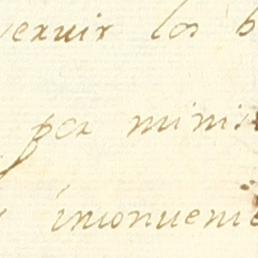 veruir los b
por minis
inconuenie